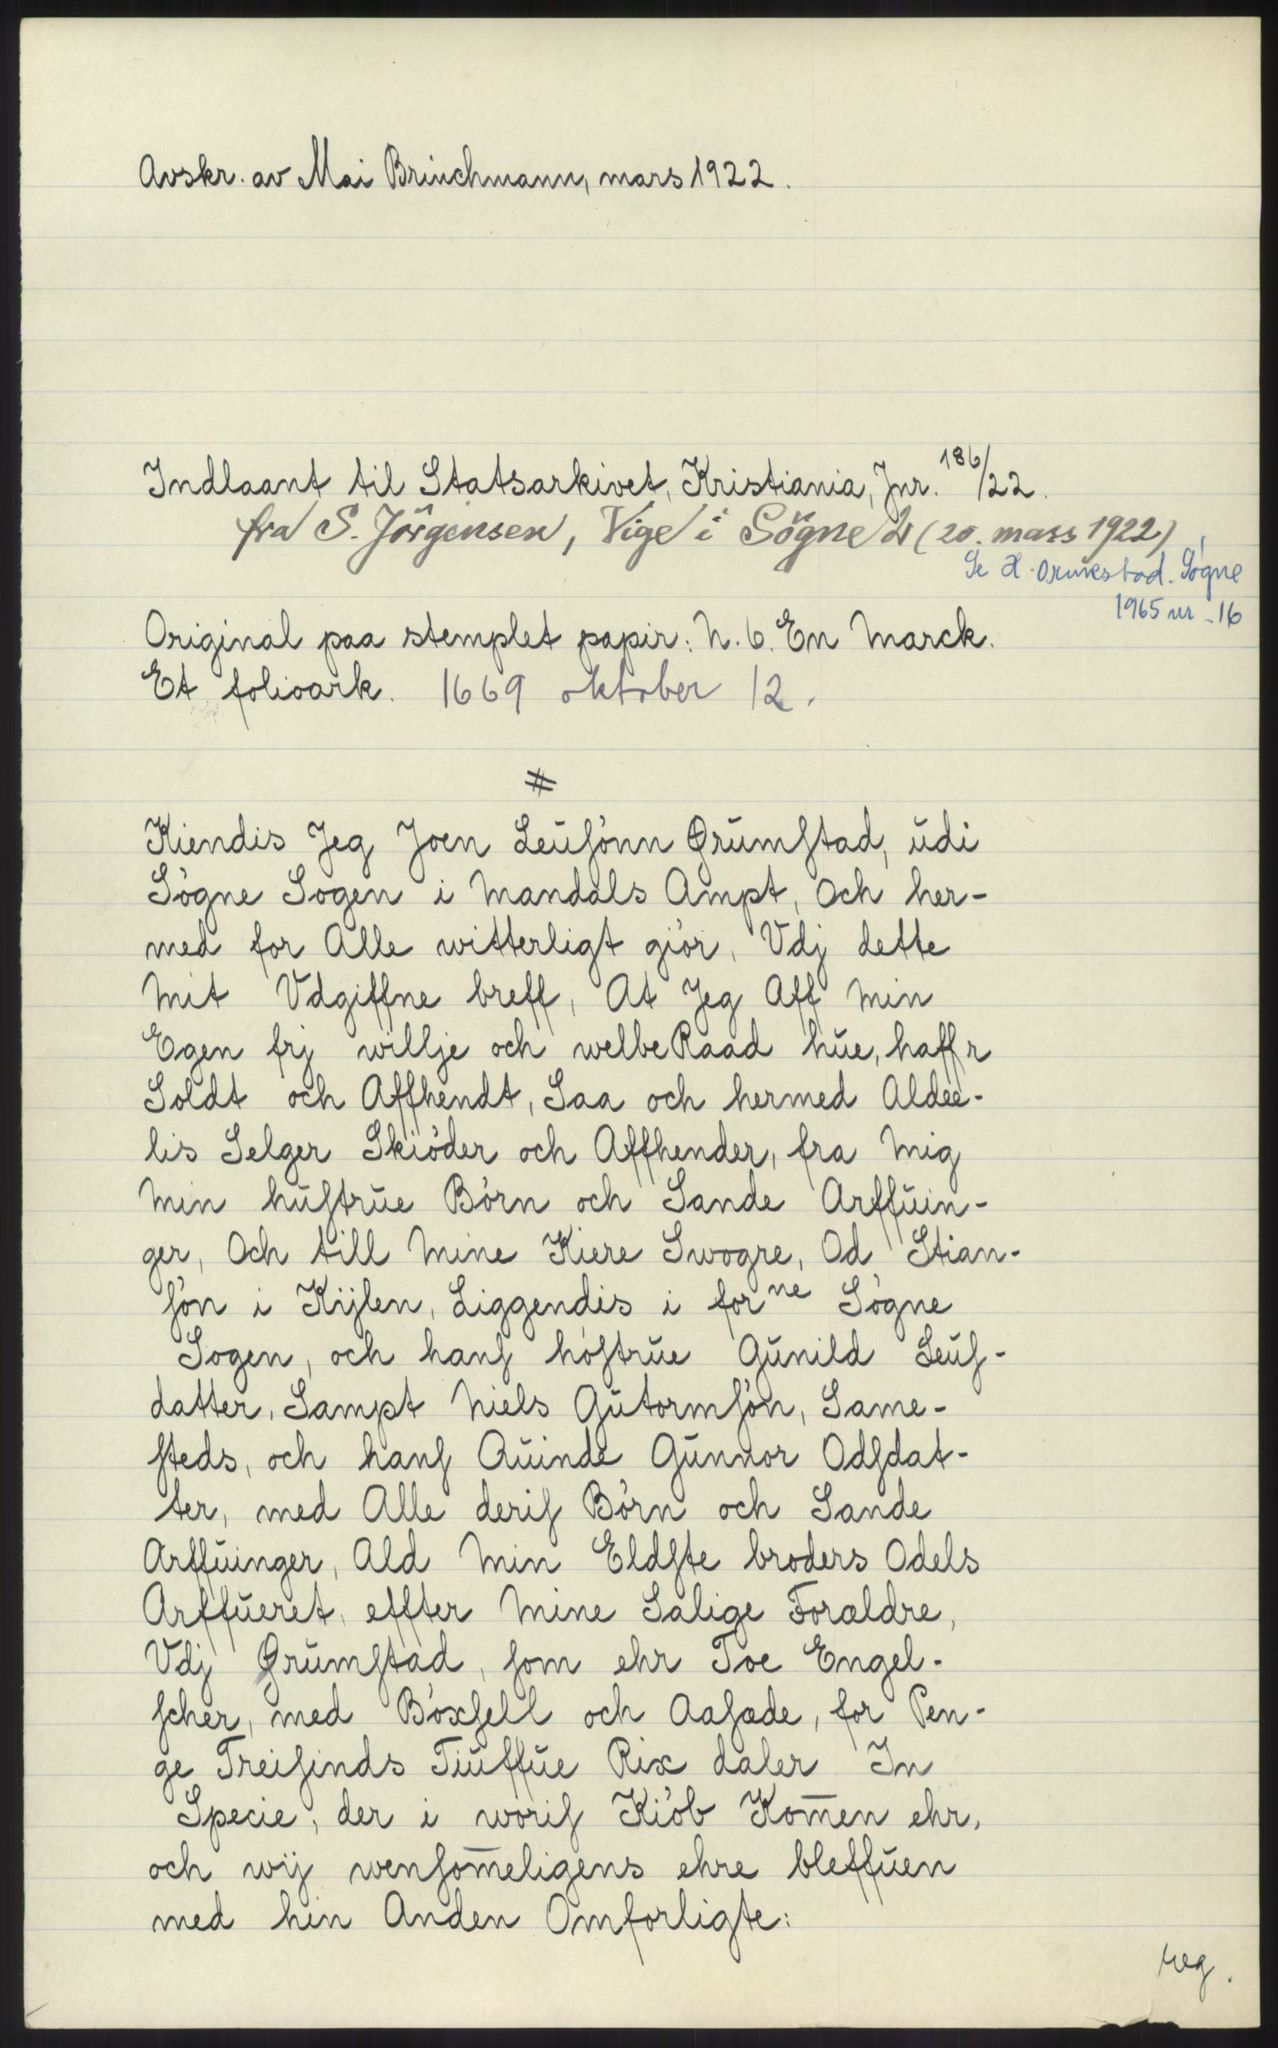 Avskr. av Mai Brinchmann, mars 1922.
Indlaant til Statsarkivet, Kristiania, Jnr. 186/22.
fra S. Jörgensen, Vige i Sögne (20. mars 1922)
Se H. Orumstad. Søgne
1965 nr. 16
Original paa stemplet papir: N. 6. En Marck.
Et folioark. 1669 oktober 12.
#
Kiendis Jeg Joen Leuſönn Ørumſtad, udi
Sögne Sogen i Mandals Ampt, Och her-
med for Alle witterligt giör, Vdj dette
Mit Vdgiffne breff, At Jeg Aff Min
Egen frj willje och welbeRaad hue, haffr
Soldt och Affhendt, Saa och hermed Aldee-
lis Selger Skiöder och Affhender, fra Mig
Min huſtrue Börn och Sande Arffuin-
ger, Och till Mine Kiere Swogre, Od Stian-
ſön i Kijlen, Liggendis i forne Sögne
Sogen, och hanſ höſtrue Gunild Leuſ-
datter, Sampt Niels Gutormſön, Same-
ſteds, och hanſ Quinde Gunnor Odſdat-
ter, med Alle deriſ Börn och Sande
Arffuinger, Ald Min Eldſte broders Odels
Arffueret, effter Mine Salige Forældre,
Vdj Ørumſtad, ſom ehr Toe Engel-
ſcher, med Böxſell och Aaſæde, for Pen-
ge Treiſinds Tiuffue Rix daler In
Specie, der i woriſ Kiöb Kom̄en ehr,
och wij wenſom̄eligens ehre bleffuen
med hin Anden Omforligte:
reg.